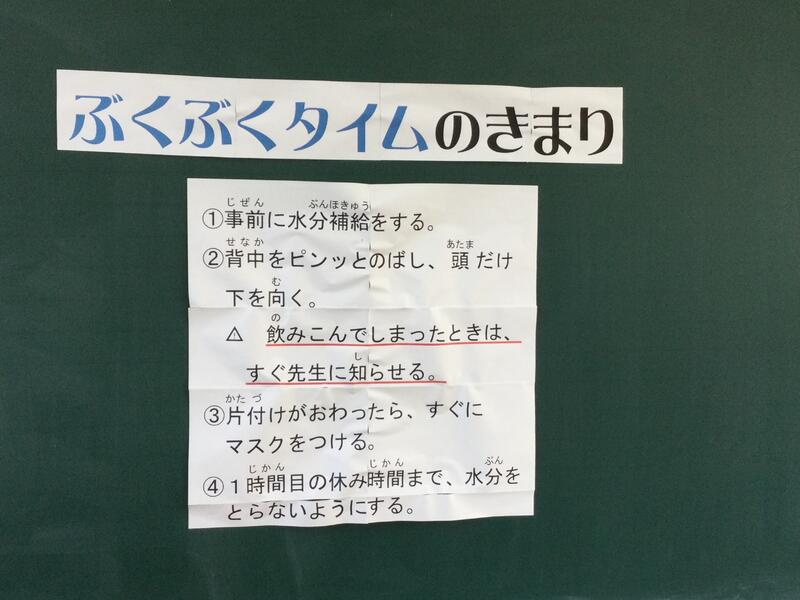 ぶくぶくタイムのきまり
じぜん ぶんほきゅう
①事前に水分補給をする。
せなか あたま
②背中をピンッとのばし、頭だけ
む
下を向く。
の
⚠ 飲みこんでしまったときは、
し
すぐ先生に知らせる。
かたづ
③片付けがおわったら、すぐに
マスクをつける。
じかん じかん ぶん
④1時間目の休み時間まで、水分を
とらないようにする。